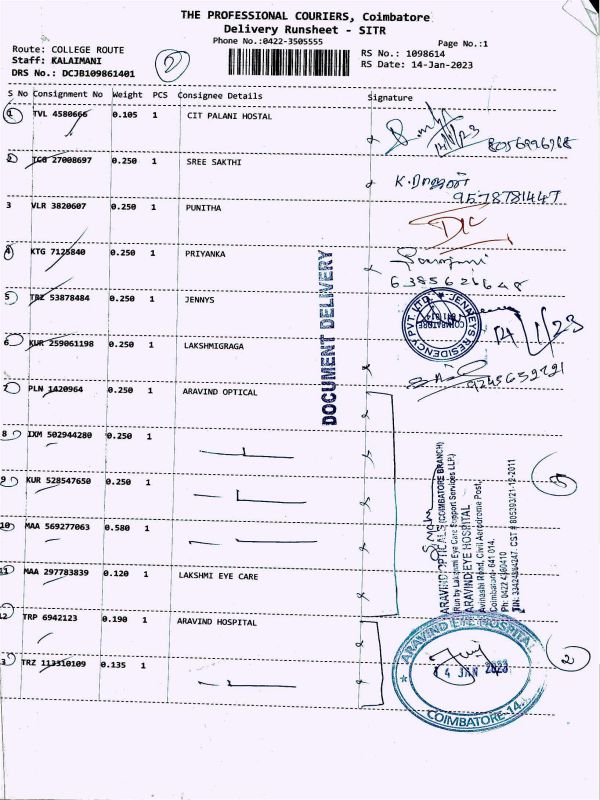 THE PROFESSIONAL COURIERS, Coimbatore
Delivery Runsheet - SITR
Phone No.:0422-3505555
Page No.:1
Route: COLLEGE ROUTE
Staff: KALAIMANI
DRS No.: DCJB109861401
2
RS No.: 1098614
RS Date: 14-Jan-2023
S No Consignment No Weight PCS Consignee Details Signature
1 TVL 4580666 0.105 1 CIT PALANI HOSTAL
14/1/23
2 TCG 27008697 0.250 1 SREE SAKTHI
9578781447
3 VLR 3820607 0.250 1 PUNITHA
4 KTG 7125840 0.250 1 PRIYANKA
6385621648
5 TRZ 53878484 0.250 1 JENNYS
JENNEYS RESIDENCY PVT. LTD.
COIMBATORE
641 014
14/1/23
6 KUR 259061198 0.250 1 LAKSHMIGRAGA
7 PLN 1420964 0.250 1 ARAVIND OPTICAL
8 IXM 502944280 0.250 1
9 KUR 528547650 0.250 1
10 MAA 569277063 0.580 1
11 MAA 297783839 0.120 1 LAKSHMI EYE CARE
12 TRP 6942123 0.190 1 ARAVIND HOSPITAL
13 TRZ 113310109 0.135 1
DOCUMENT DELIVERY
ARAVIND OPTICALS (COIMBATORE BRANCH)
(Run by Lakshmi Eye Care Support Services LLP)
ARAVIND EYE HOSPITAL
Avinashi Road, Civil Aerodrome Post,
Coimbatore- 641 014.
Ph: 0422 4360410
5
ARAVIND EYE HOSPITAL
14 JAN 2023
COIMBATORE-14.
2